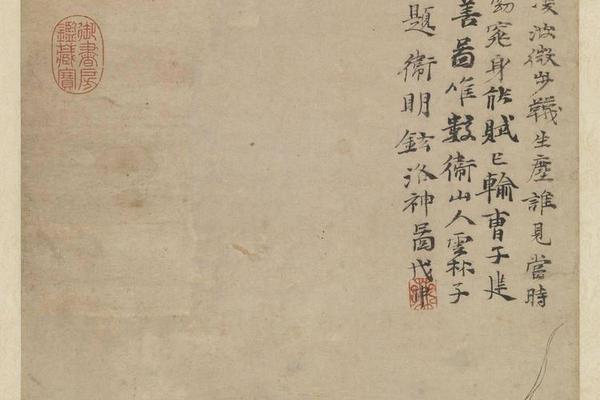 波微步韤生塵誰見當時
窕身能賦已輸曹子建
善啚唯數衛山人雲林子
題衛明鉉洛神啚戊申
御書房
鑑藏寶